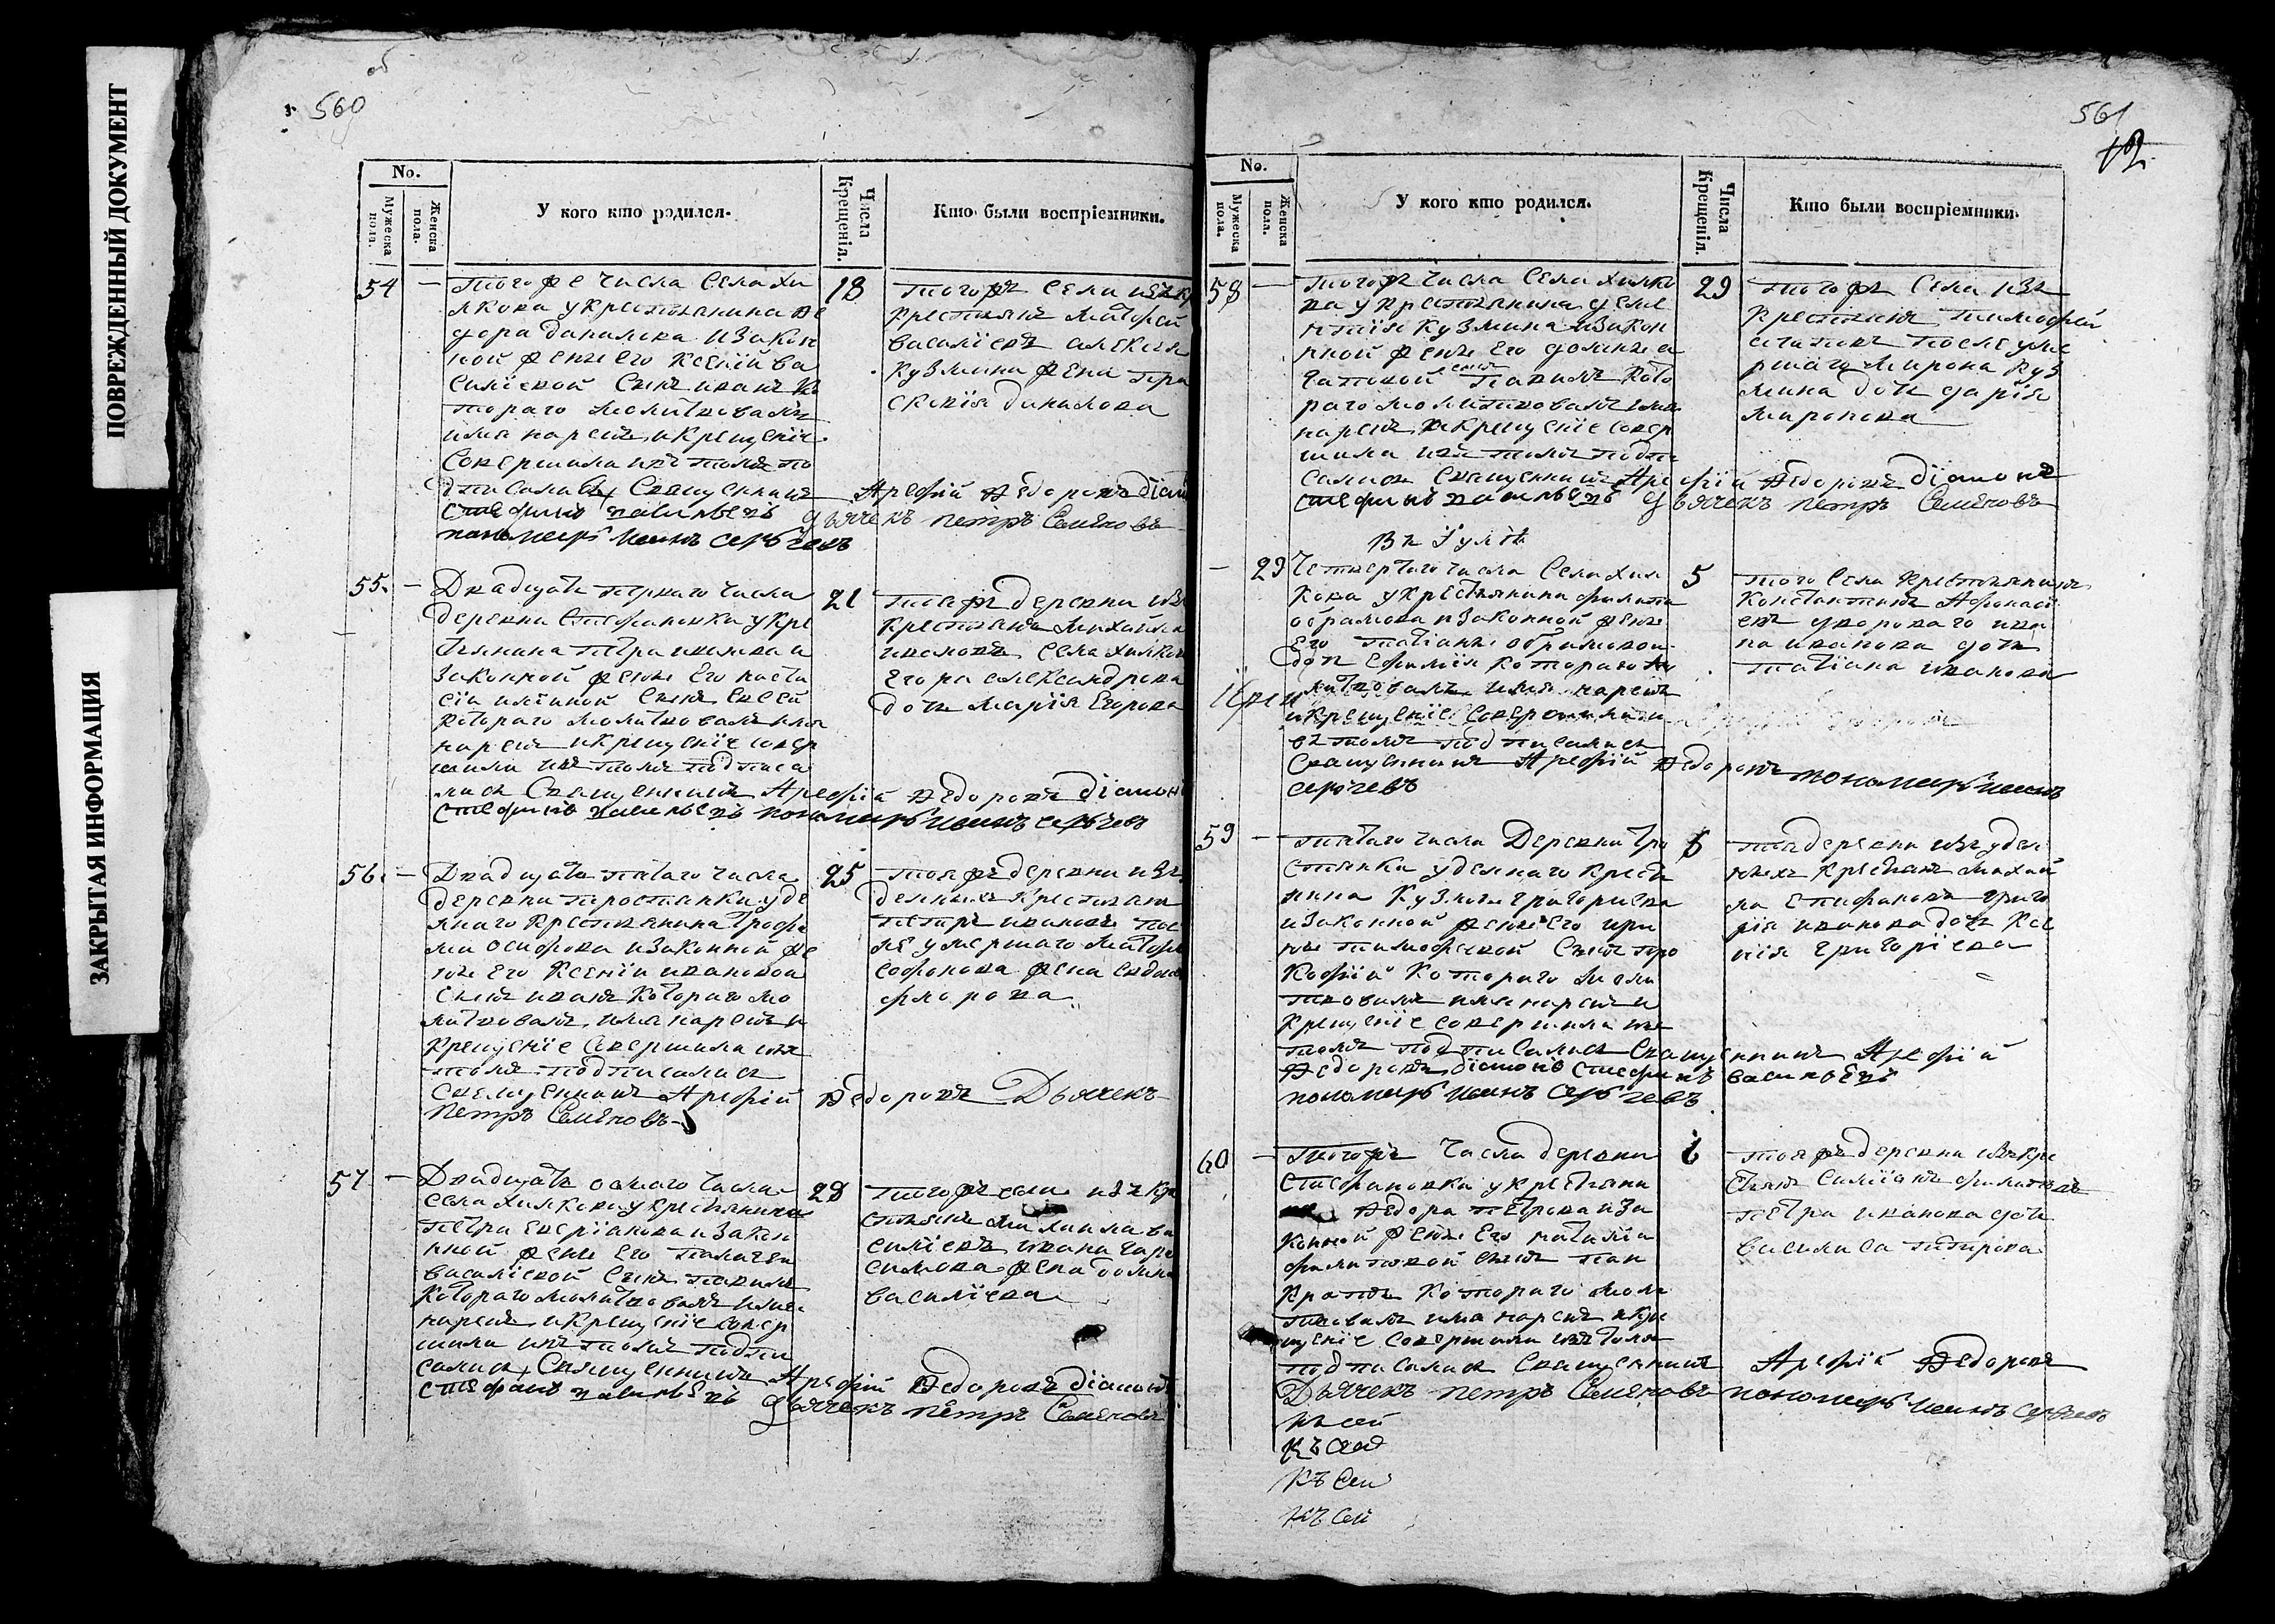 ПОВРЕЖДЕННЫЙ ДОКУМЕНТ
ЗАКРЫТАЯ ИНФОРМАЦИЯ
560
No.
Мужеска пола.
Женска пола.
У кого кто родился.
Числа Крещенія.
Кто были воспріемники.
54 —
тогоже числа села хи
лкова укрестьянина Ѳе
дора данилова изакон
ной жены его ксеніи ва
силіевой сынъ иванъ ко
тораго молитвовалъ
имя нарекъ икрещеніе
совершилъ
дписались Священникъ Арефій Ѳедоровъ діаконъ
стефанъ васильевъ дьячекъ петръ Семеновъ
пономарь иванъ сергѣевъ
18
тогоже села изъ
крестьянъ матфей
василіевъ алексея
кузмина жена пра
сковія данилова
55. —
Двадцать перваго числа
деревни Стефановки укре
стьянина петра иванова и
законной жены его наста
сіи сынъ евсей
котораго молитвовалъ имя
нарекъ икрещеніе совер
шили въ томъ подписа
лись Священникъ Арефій Ѳедоровъ діаконъ
стефанъ васильевъ пономарь иванъ сергѣевъ
21
тоеже деревни изъ
крестьянъ михайла
ивановъ села хилкова
Егора александрова
дочь марія Егорова
56. —
Двадцать пятаго числа
деревни тростянки уде
лнаго крестьянина трофи
ма осифова изаконной же
ны его ксеніи ивановой
сынъ иванъ котораго мо
литвовалъ, имя нарекъ и
крещеніе совершили въ
томъ подписались
священникъ Арефій Ѳедоровъ Дьячекъ
петръ Семеновъ
25
тояже деревни изъ
делныхъ крестьянъ
петръ ивановъ пос
лѣ умершаго матфея
софонова жена
фторова
57 —
Двадцать осмаго числа
села хилкова укрестьянина
петра изакон
ной жены его палагеи
василіевой сынъ павелъ
котораго молитвовалъ имя
нарекъ икрещеніе совер
шили въ томъ подпи
сались Священникъ Арефій Ѳедоровъ діаконъ
стефанъ васильевъ дьячекъ петръ Семеновъ
28
тогоже села изъ кре
стьянъ михайла ва
силіевъ ивана гара
симова жена
василіева
561
No.
Мужеска пола.
Женска пола.
У кого кто родился.
Числа Крещенія.
Кто были воспріемники.
58 —
тогожъ числа села хилко
ва укрестьянина деме
нтія кузмина изакон
нной жены его
сынъ павелъ кото
раго молитвовалъ имя
нарекъ, икрещеніе совер
шили въ томъ подпи
сались Священникъ Арефій Ѳедоровъ діаконъ
стефанъ васильевъ дьячекъ петръ Семеновъ
29
тогожъ села изъ
крестьянъ тимофей
после уме
ршаго мирона куз
мина дочь дарія
миронова
въ Іулѣ
— 29
Четвертаго числа села хил
кова укрестьянина филипа
абрамова изаконной жены
его татіаны абрамовой
дочь Ефимія котораго мо
литвовалъ имя нарекъ
икрещеніе совершили и
въ томъ подписались
Священникъ Арефій Ѳедоровъ пономарь иванъ
сергѣевъ
5
того села крестьянинъ
константинъ Афонаси
евъ ива
на иванова дочь
татіана иванова
59 —
пятаго числа Деревни тро
стянки уделнаго крестья
нина кузмы григорьева
изаконной жены его ири
ны тимофеевой сынъ про
кофій котораго моли
твовалъ имя нарекъ и
крещеніе совершили въ
томъ подписались Священникъ Арефій
Ѳедоровъ діаконъ стефанъ васильевъ
пономарь иванъ сергѣевъ
6
тоя деревни изъ удел
ныхъ крестьянъ михай
ла епифанова григо
рія иванова дочь ксе
нія григоріева
60 —
тогожъ числа деревни
Стефановки укрестьяни
на Ѳедора петрова иза
конной жены его наталіи
филиповой сынъ пан
кратъ котораго моли
твовалъ имя нарекъ икре
щеніе совершили въ томъ
подписались Священникъ Арефій Ѳедоровъ
Дьячекъ петръ Семеновъ пономарь иванъ сергѣевъ
къ сей
къ сей
къ сей
6
тояже деревни изъ кре
стьянъ филиповъ
петра иванова дочь
василиса петрова